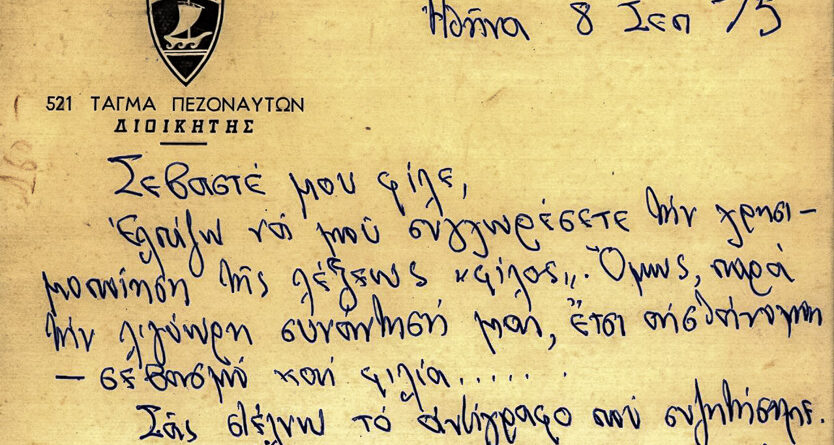 Ἀθήνα 8 Σεπ 75
521 ΤΑΓΜΑ ΠΕΖΟΝΑΥΤΩΝ
ΔΙΟΙΚΗΤΗΣ
Σεβαστέ μου φίλε,
Ἐλπίζω νά μοῦ συγχωρέσετε τήν χρησι-
μοποίηση τῆς λέξεως «φίλος». Ὅμως, παρά
τήν λιγόωρη συνάντησή μας, ἔτσι αἰσθάνομαι
— σεβασμό καί φιλία......
Σᾶς στέλνω τό ἀντίγραφο πού συζητήσαμε.